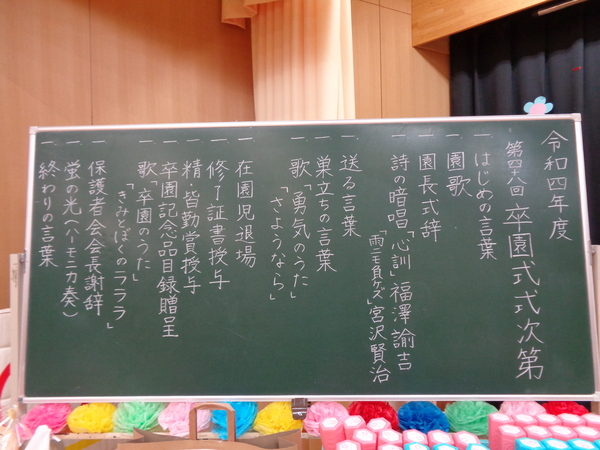 令和四年度
第四十八回 卒園式式次第
一 はじめの言葉
一 園歌
一 園長式辞
一 詩の暗唱「心訓」福澤諭吉
「雨ニモ負ケズ」宮沢賢治
一 送る言葉
一 巣立ちの言葉
一 歌「勇気のうた」
「さようなら」
一 在園児退場
一 修了証書授与
一 精・皆勤賞授与
一 卒園記念品目録贈呈
一 歌「卒園のうた」
「きみとぼくのラララ」
一 保護者会会長謝辞
一 蛍の光(ハーモニカ奏)
一 終わりの言葉